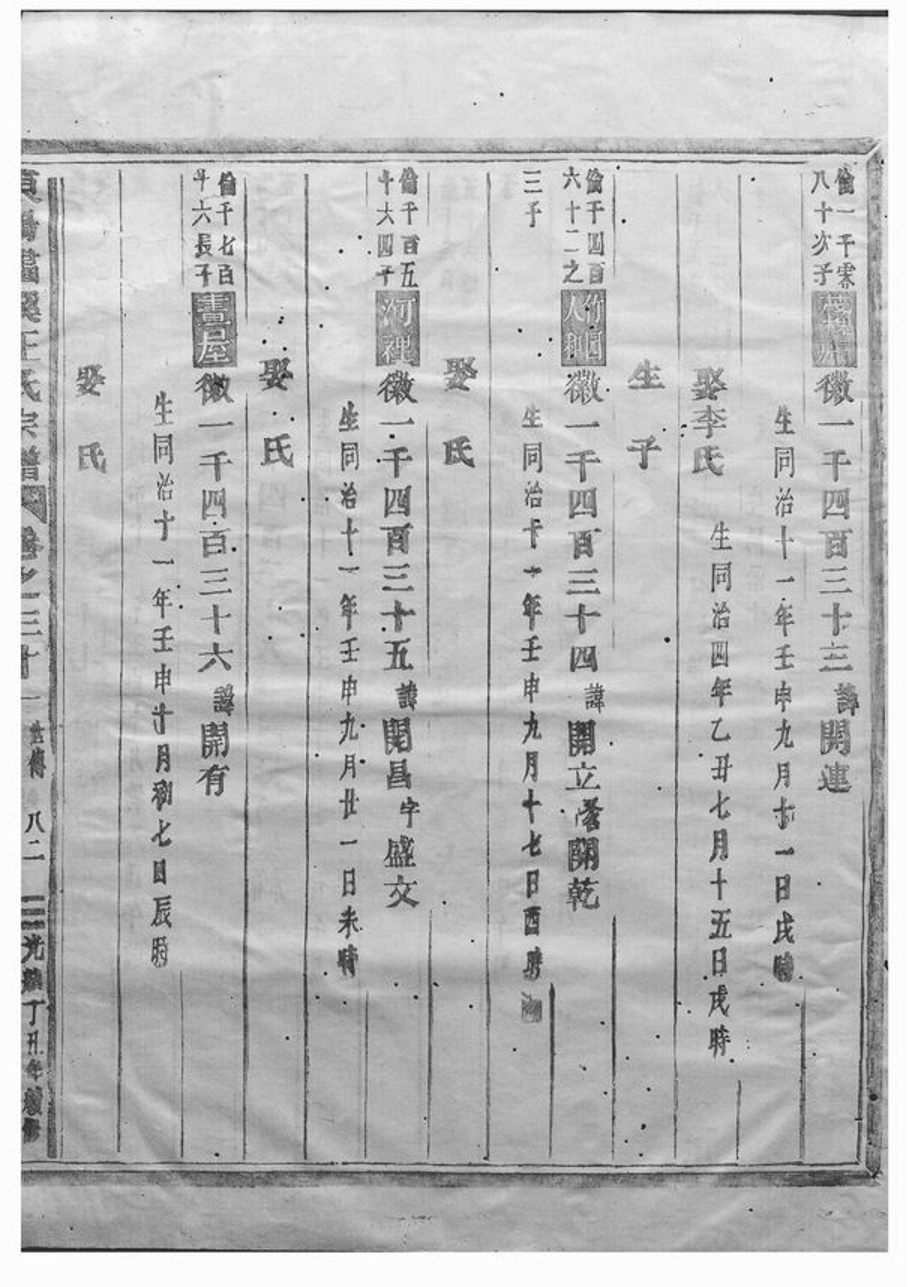 倫一千零八十次子
徽一千四百三十三諱開連
生同治十一年壬申九月十一日戌時
娶李氏
生同治四年乙丑七月十五日戌時
生子
倫千四百六十二之三子
徽一千四百三十四諱開立
開乾
生同治十一年壬申九月十七日酉時
娶氏
倫千百五十六四子
河裡
徽一千四百三十五諱開昌字盛文
生同治十一年壬申九月廿一日未時
娶氏
倫千七百六長子
書屋
徽一千四百三十六諱開有
生同治十一年壬申十月初七日辰時
娶氏
王氏宗譜
卷之三十一
世傳
八二
光緒丁丑年續修